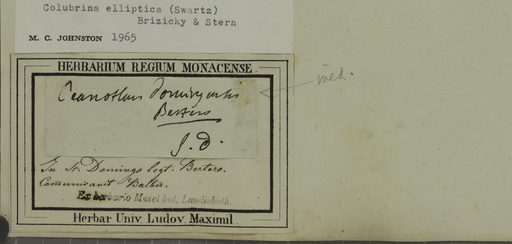 Colubrina elliptica (Swartz)
Brizicky & Stern
M. C. JOHNSTON 1965
HERBARIUM REGIUM MONACENSE
Ceanothus domingensis
Bertero
ined.
S. d.
In St. Domingo legt. Bertero.
Comunicavit Balbis.
Ex herbario Musei bot. Landishuth.
Herbar Univ. Ludov. Maximil.